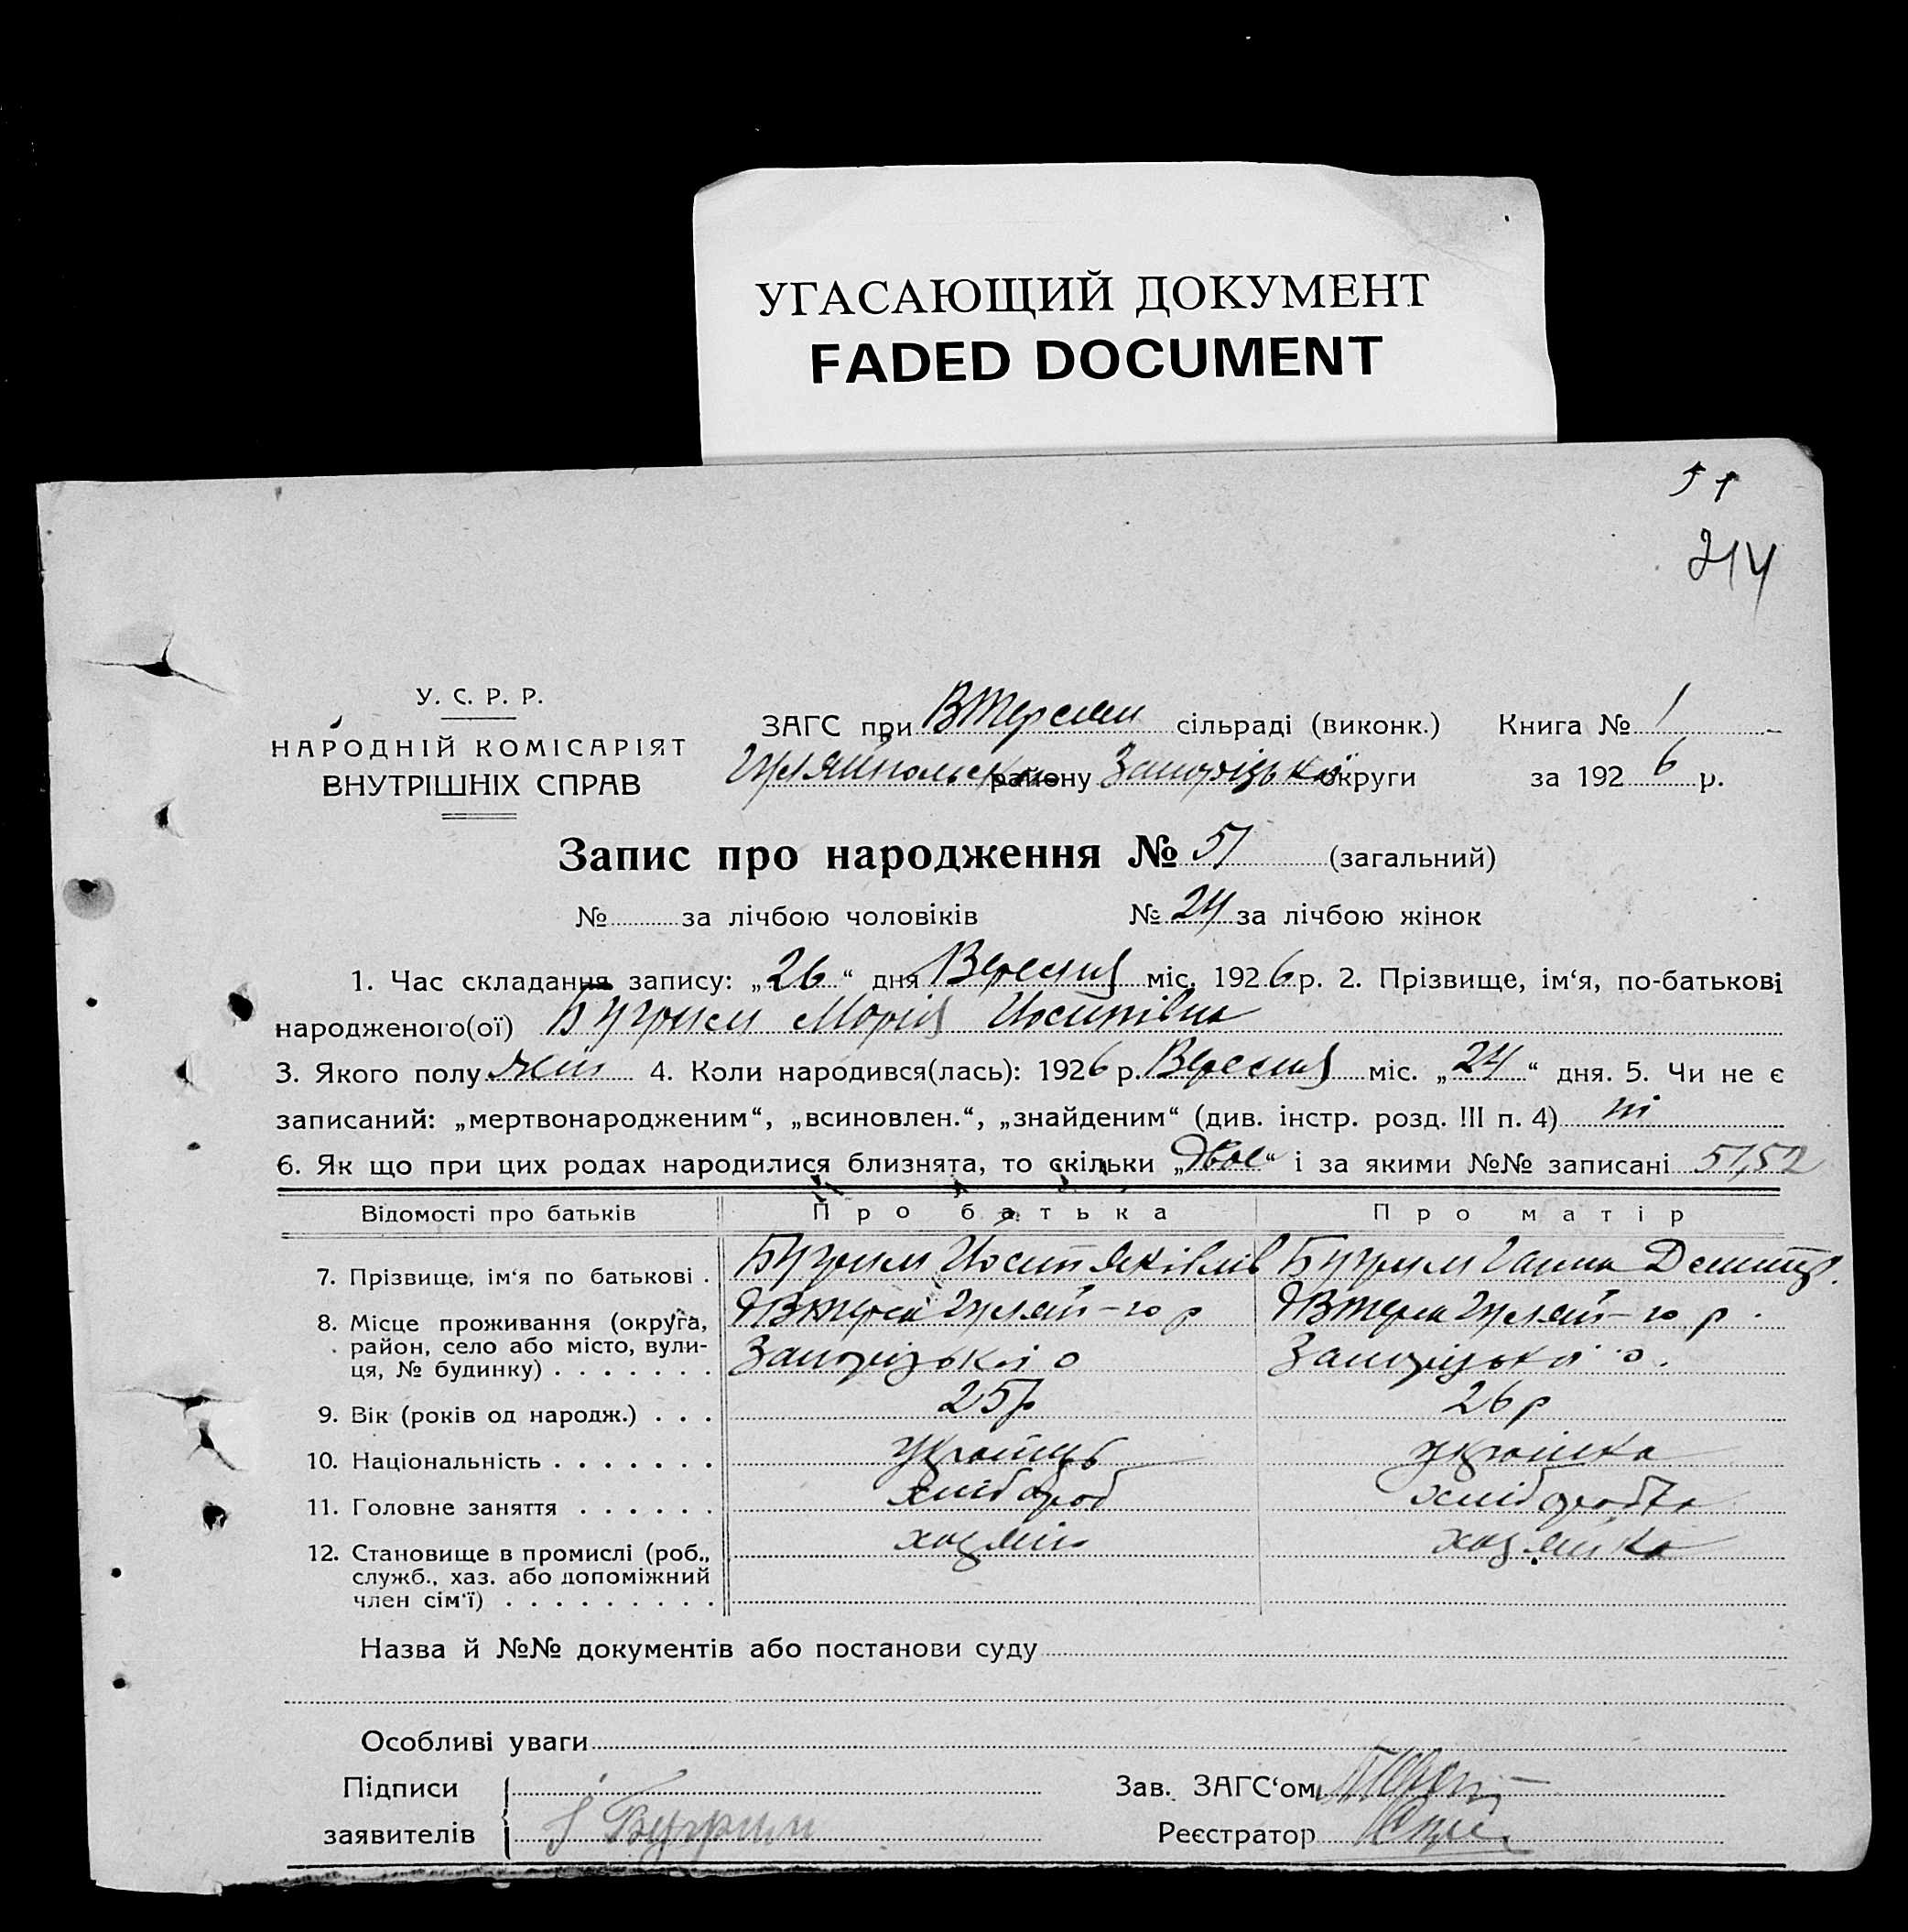 УГАСАЮЩИЙ ДОКУМЕНТ
FADED DOCUMENT
51
214
У. С. Р. Р.
НАРОДНІЙ КОМІСАРІЯТ
ВНУТРІШНІХ СПРАВ
ЗАГС при сільраді (виконк.) Книга № 1
району Запорізької округи за 1926 р.
Запис про народження № 51 (загальний)
№ за лічбою чоловіків № 24 за лічбою жінок
1. Час складання запису: „26“ дня Вересня міс. 1926 р. 2. Прізвище, ім‘я, по-батькові
народженого(ої) Бугрим Марія Йосипівна
3. Якого полу жін 4. Коли народився(лась): 1926 р. Вересня міс. „24“ дня. 5. Чи не є
записаний: „мертвонародженим“, „всиновлен.“, „знайденим“ (див. інстр. розд. III п. 4) ні
6. Як що при цих родах народилися близнята, то скільки „двоє“ і за якими №№ записані 51,52
Відомості про батьків Про батька Про матір
7. Прізвище, ім‘я по батькові . Бугрим Йосип Яківлів Бугрим Ганна
8. Місце проживання (округа, район, село або місто, вулиця, № будинку) . . . . . . .
Запорізької о Запорізької о.
9. Вік (років од народж.) . . . 25 р 26 р
10. Національність . . . . . . . українць українка
11. Головне заняття . . . . . . хлібороб хліборобка
12. Становище в промислі (роб., хазяїн хазяйка
служб., хаз. або допоміжний
член сім‘ї) . . . . . . . . .
Назва й №№ документів або постанови суду
Особливі уваги
Підписи Зав. ЗАГС‘ом
заявителів Бугрим Реєстратор